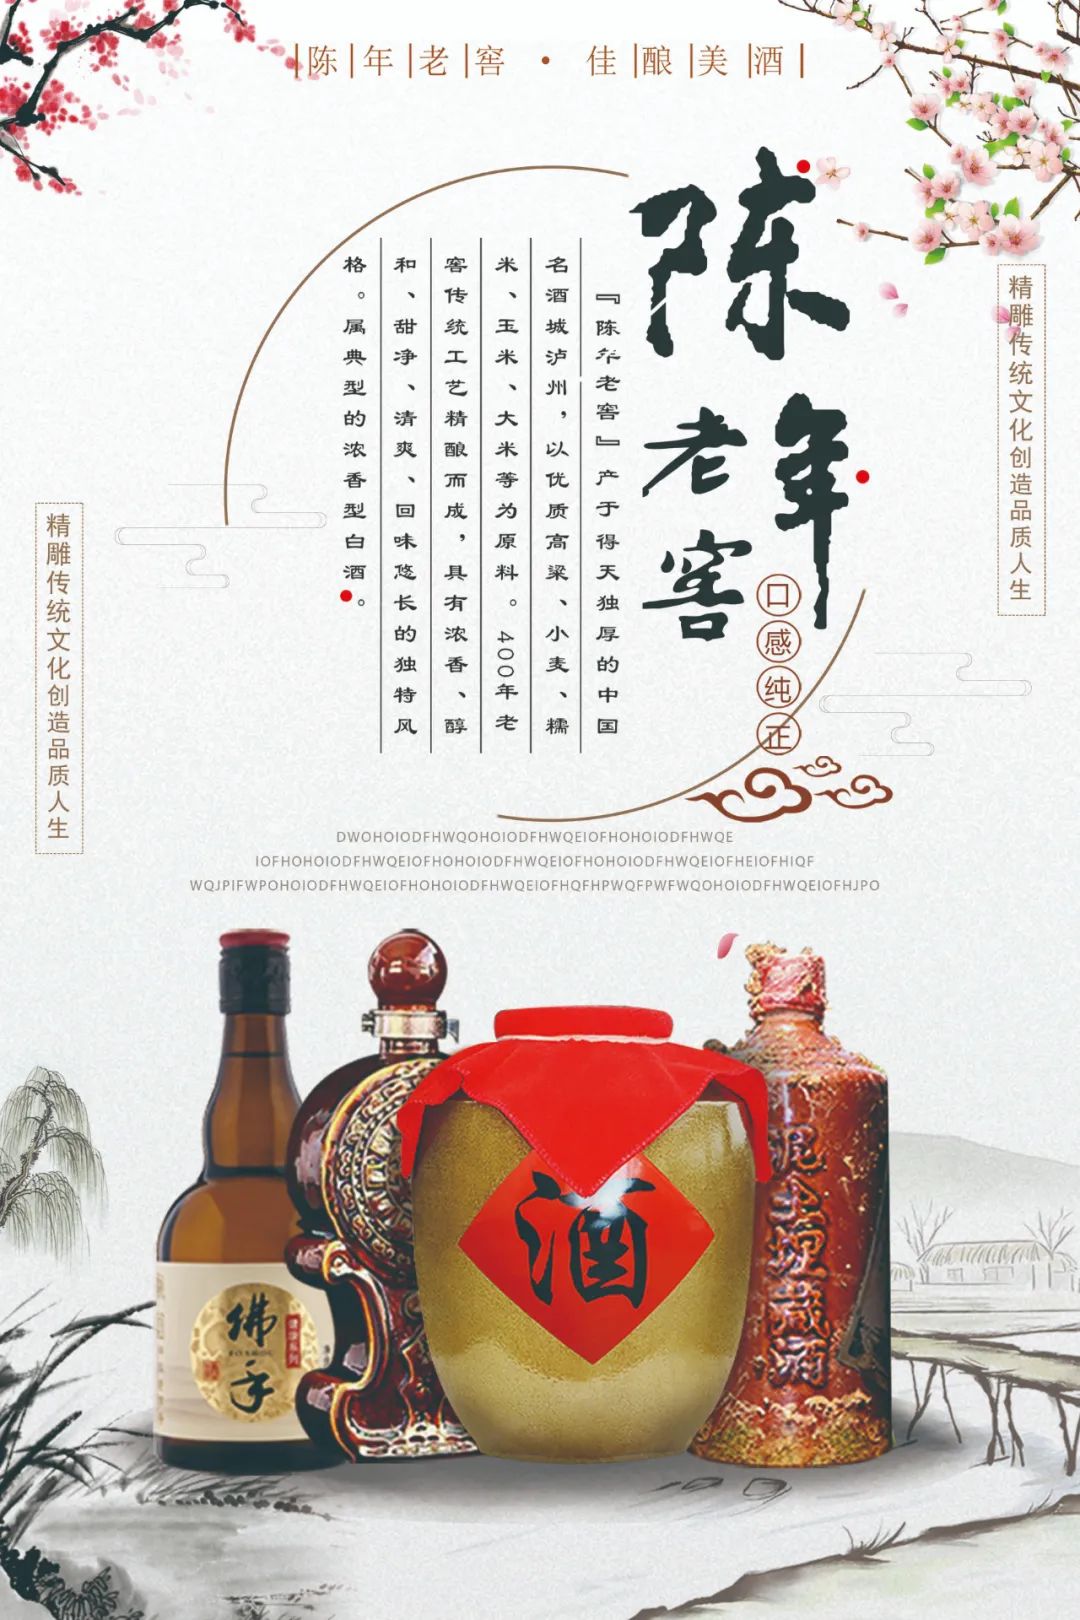 陈年老窖·佳酿美酒
陈年
老窖
口感纯正
『陈年老窖』产于得天独厚的中国
名酒城泸州，以优质高粱、小麦、糯
米、玉米、大米等为原料。400年老
窖传统工艺精酿而成，具有浓香、醇
和、甜净、清爽、回味悠长的独特风
格。属典型的浓香型白酒。
精雕传统文化创造品质人生
精雕传统文化创造品质人生
DWOHOIODFHWQOHOIODFHWQEIOFHOHOIODFHWQE
IOFHOHOIODFHWQEIOFHOHOIODFHWQEIOFHOHOIODFHWQEIOFHEIOFHIQF
WQJPIFWPOHOIODFHWQEIOFHOHOIODFHWQEIOFHQFHPWQFPWFWQOHOIODFHWQEIOFHJPO
佛手
FOSHOU
酒
泥土坛藏酒